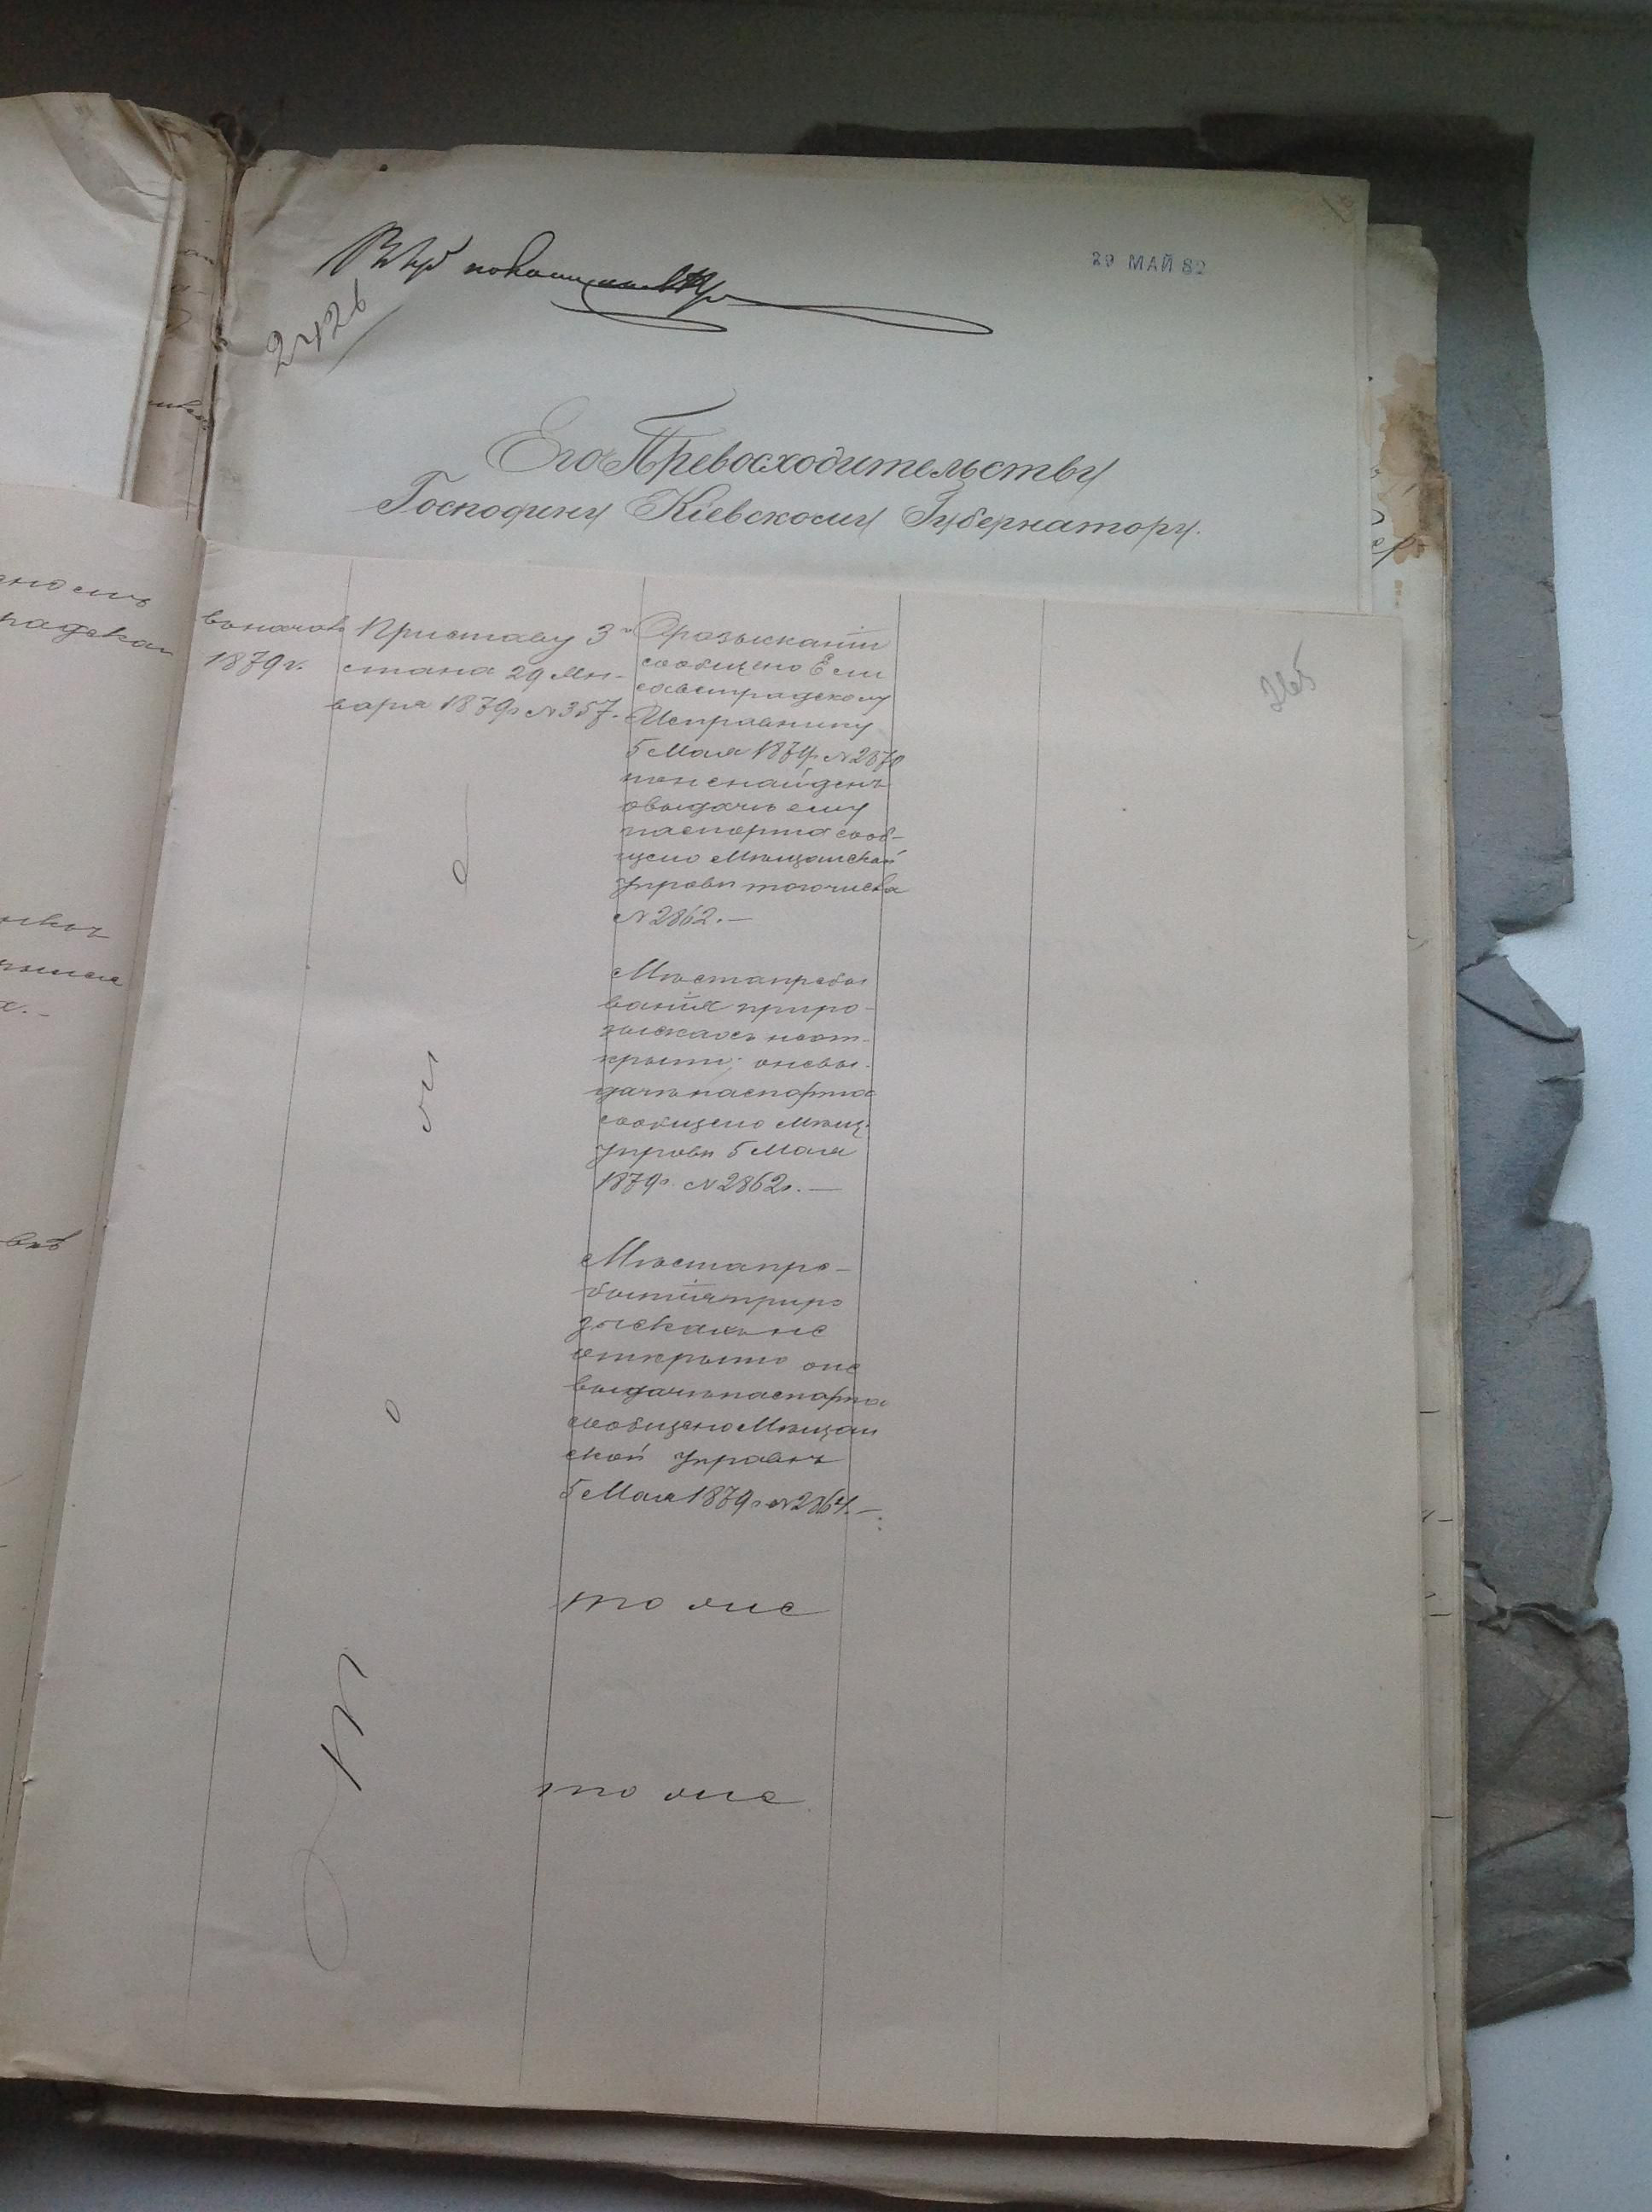 29 МАЙ 82
2426
Его Превосходительству
Господину Кіевскому Губернатору.
265
вначалѣ
1879 г.
Приставу 3 го
стана 29 Ян-
варя 1879 г № 357.
О розысканіи
сообщено Ели
саветградскому
Исправнику
5 Мая 1879 г № 2870
ненайденъ
овыдачѣ ему
паспорта сооб-
щено Мѣщанской
Управѣ тогочисла
№ 2862.—
Мѣстапребы
ванія приро-
зыскахъ неот-
крыто; оневы-
дачѣ паспорта
сообщено Мѣщ.
Управѣ 5 Мая
1879 г. № 2862.—
Мѣстапре-
бытія приро
зыскахъ не
открыто оне
выдачѣ паспорта
сообщено Мѣщан
ской Управѣ
5 Мая 1879 г № 2864.—
тоже
тоже